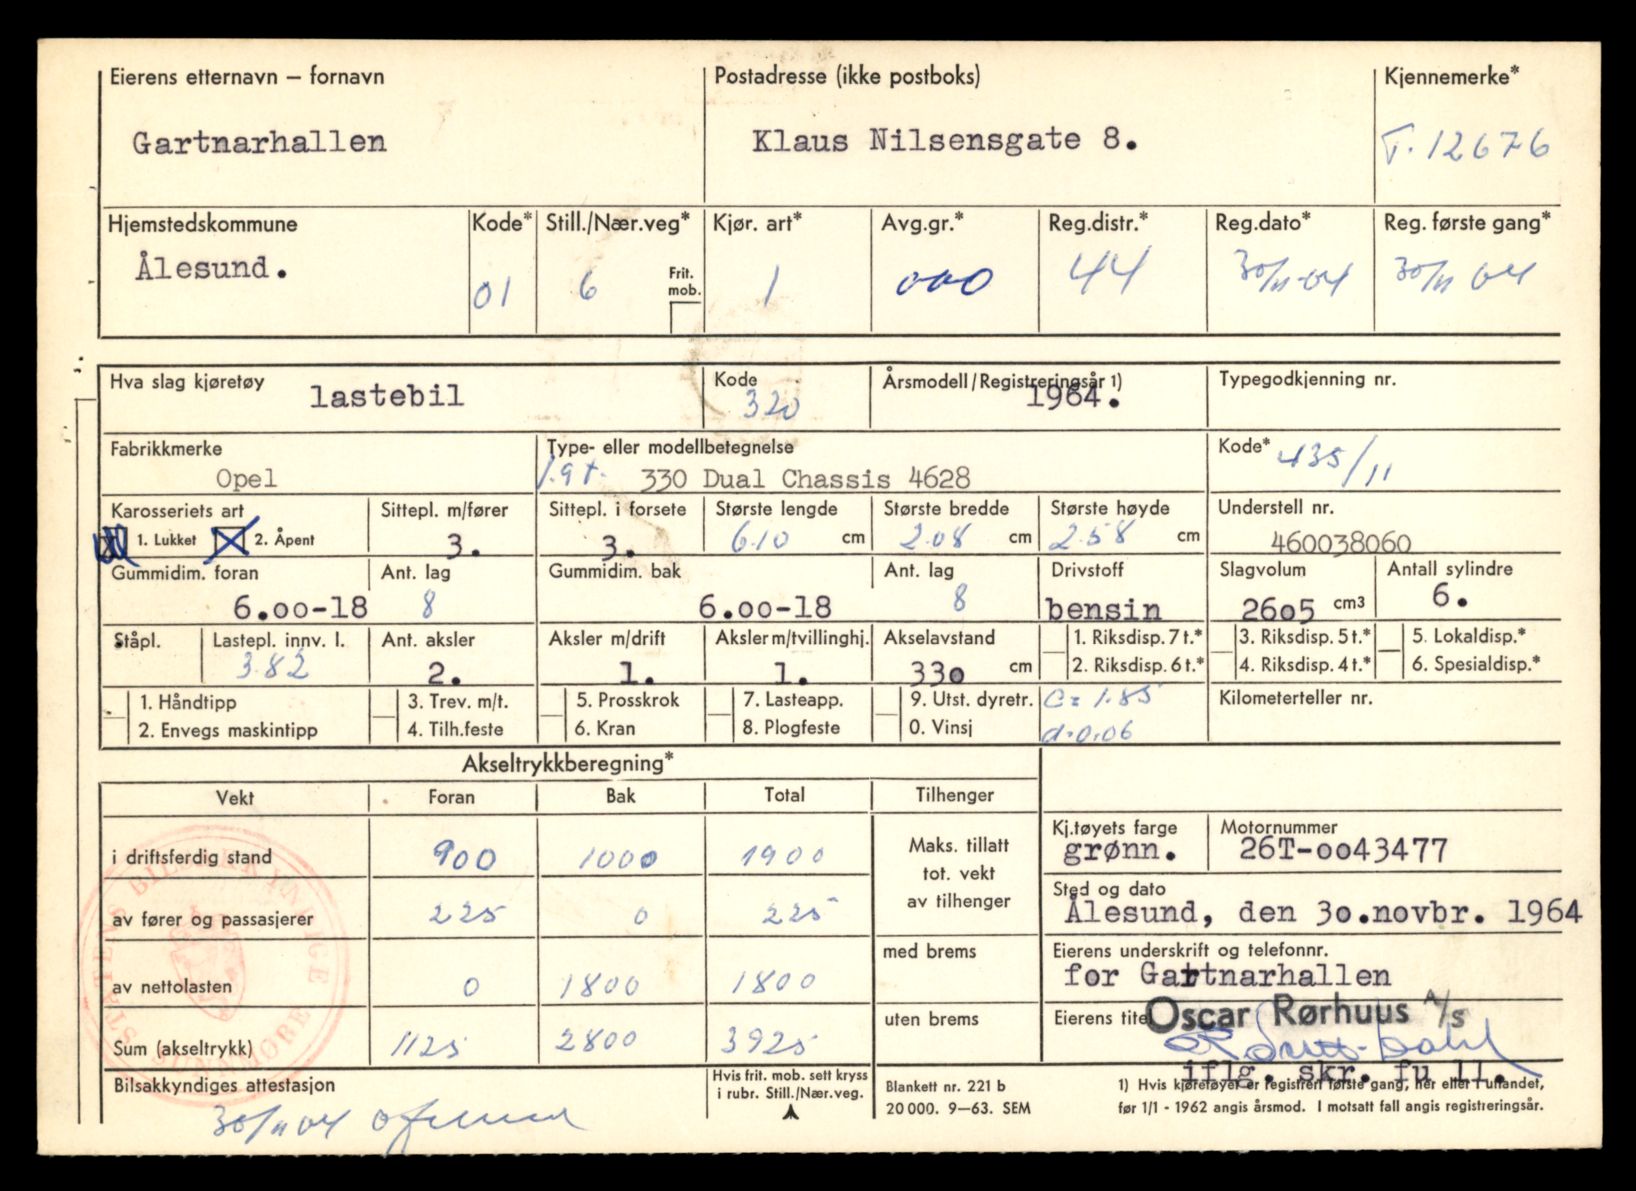 Eierens etternavn – fornavn Postadresse (ikke postboks) Kjennemerke*
Gartnarhallen Klaus Nilsensgate 8. T-12676
Hjemstedskommune Kode* Still./Nær.veg* Kjør. art* Avg.gr.* Reg.distr.* Reg.dato* Reg. første gang*
Ålesund. 01 6 Frit. mob. 1 000 44 30/11-64 30/11 64
Hva slag kjøretøy lastebil Kode 320 Årsmodell/Registreringsår 1) 1964. Typegodkjenning nr.
Fabrikkmerke Type- eller modellbetegnelse Kode* 435/11
Opel 1.9t. 330 Dual Chassis 4628
Karosseriets art Sittepl. m/fører Sittepl. i forsete Største lengde Største bredde Største høyde Understell nr.
1. Lukket 2. Åpent 3. 3. 610 cm 208 cm 258 cm 460038060
Gummidim. foran Ant. lag Gummidim. bak Ant. lag Drivstoff Slagvolum Antall sylindre
6.00-18 8 6.00-18 8 bensin 2605 cm3 6.
Ståpl. Lastepl. innv. l. Ant. aksler Aksler m/drift Aksler m/tvillinghj. Akselavstand 1. Riksdisp. 7 t.* 3. Riksdisp. 5 t.* 5. Lokaldisp.*
3.82 2. 1. 1. 330 cm 2. Riksdisp. 6 t.* 4. Riksdisp. 4 t.* 6. Spesialdisp.*
1. Håndtipp 3. Trev. m/t. 5. Prosskrok 7. Lasteapp. 9. Utst. dyretr. C= 1.85 Kilometerteller nr.
2. Envegs maskintipp 4. Tilh.feste 6. Kran 8. Plogfeste 0. Vinsj d=0.06
Akseltrykkberegning*
Vekt Foran Bak Total Tilhenger
i driftsferdig stand 900 1000 1900 Maks. tillatt tot. vekt av tilhenger
Kj.tøyets farge Motornummer
grønn. 26T-0043477
av fører og passasjerer 225 0 225
Sted og dato
Ålesund, den 30.novbr. 1964
av nettolasten 0 1800 1800 med brems
Eierens underskrift og telefonnr.
for Gartnarhallen
Sum (akseltrykk) 1125 2800 3925 uten brems
Eierens titel Oscar Rørhuus A/S
iflg. skr. fu ll.
STATENS BILSAKKYNDIGE SUNNMØRE
Bilsakkyndiges attestasjon Hvis frit. mob. sett kryss i rubr. Still./Nær.veg.
30/11 64
Blankett nr. 221 b
20 000. 9–63. SEM
1) Hvis kjøretøyet er registrert første gang, her eller i utlandet,
før 1/1 - 1962 angis årsmod. I motsatt fall angis registreringsår.